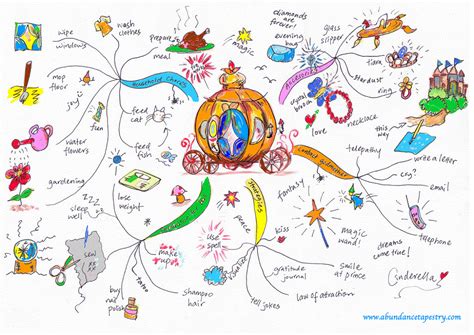 wipe
windows
wash
clothes
prepare
meal
magic
mop
floor
joy
fun
Household Chores
feed
cat
water
flowers
feed
fish
gardening
zzz
sleep
well
lose
weight
diamonds
are forever!
evening
bag
glass
slipper
Accessories
tiara
stardust
ring
crystal
brooch
love
necklace
this
way
telepathy
write a letter
email
telephone
fantasy
magic
wand!
dreams
come true!
peace
kiss
smile
at prince
law of attraction
gratitude
journal
tell jokes
visualize
use
spell
magic
shampoo
hair
tattoo
buy
nail
polish
Cinderella
www.abundancetapestry.com